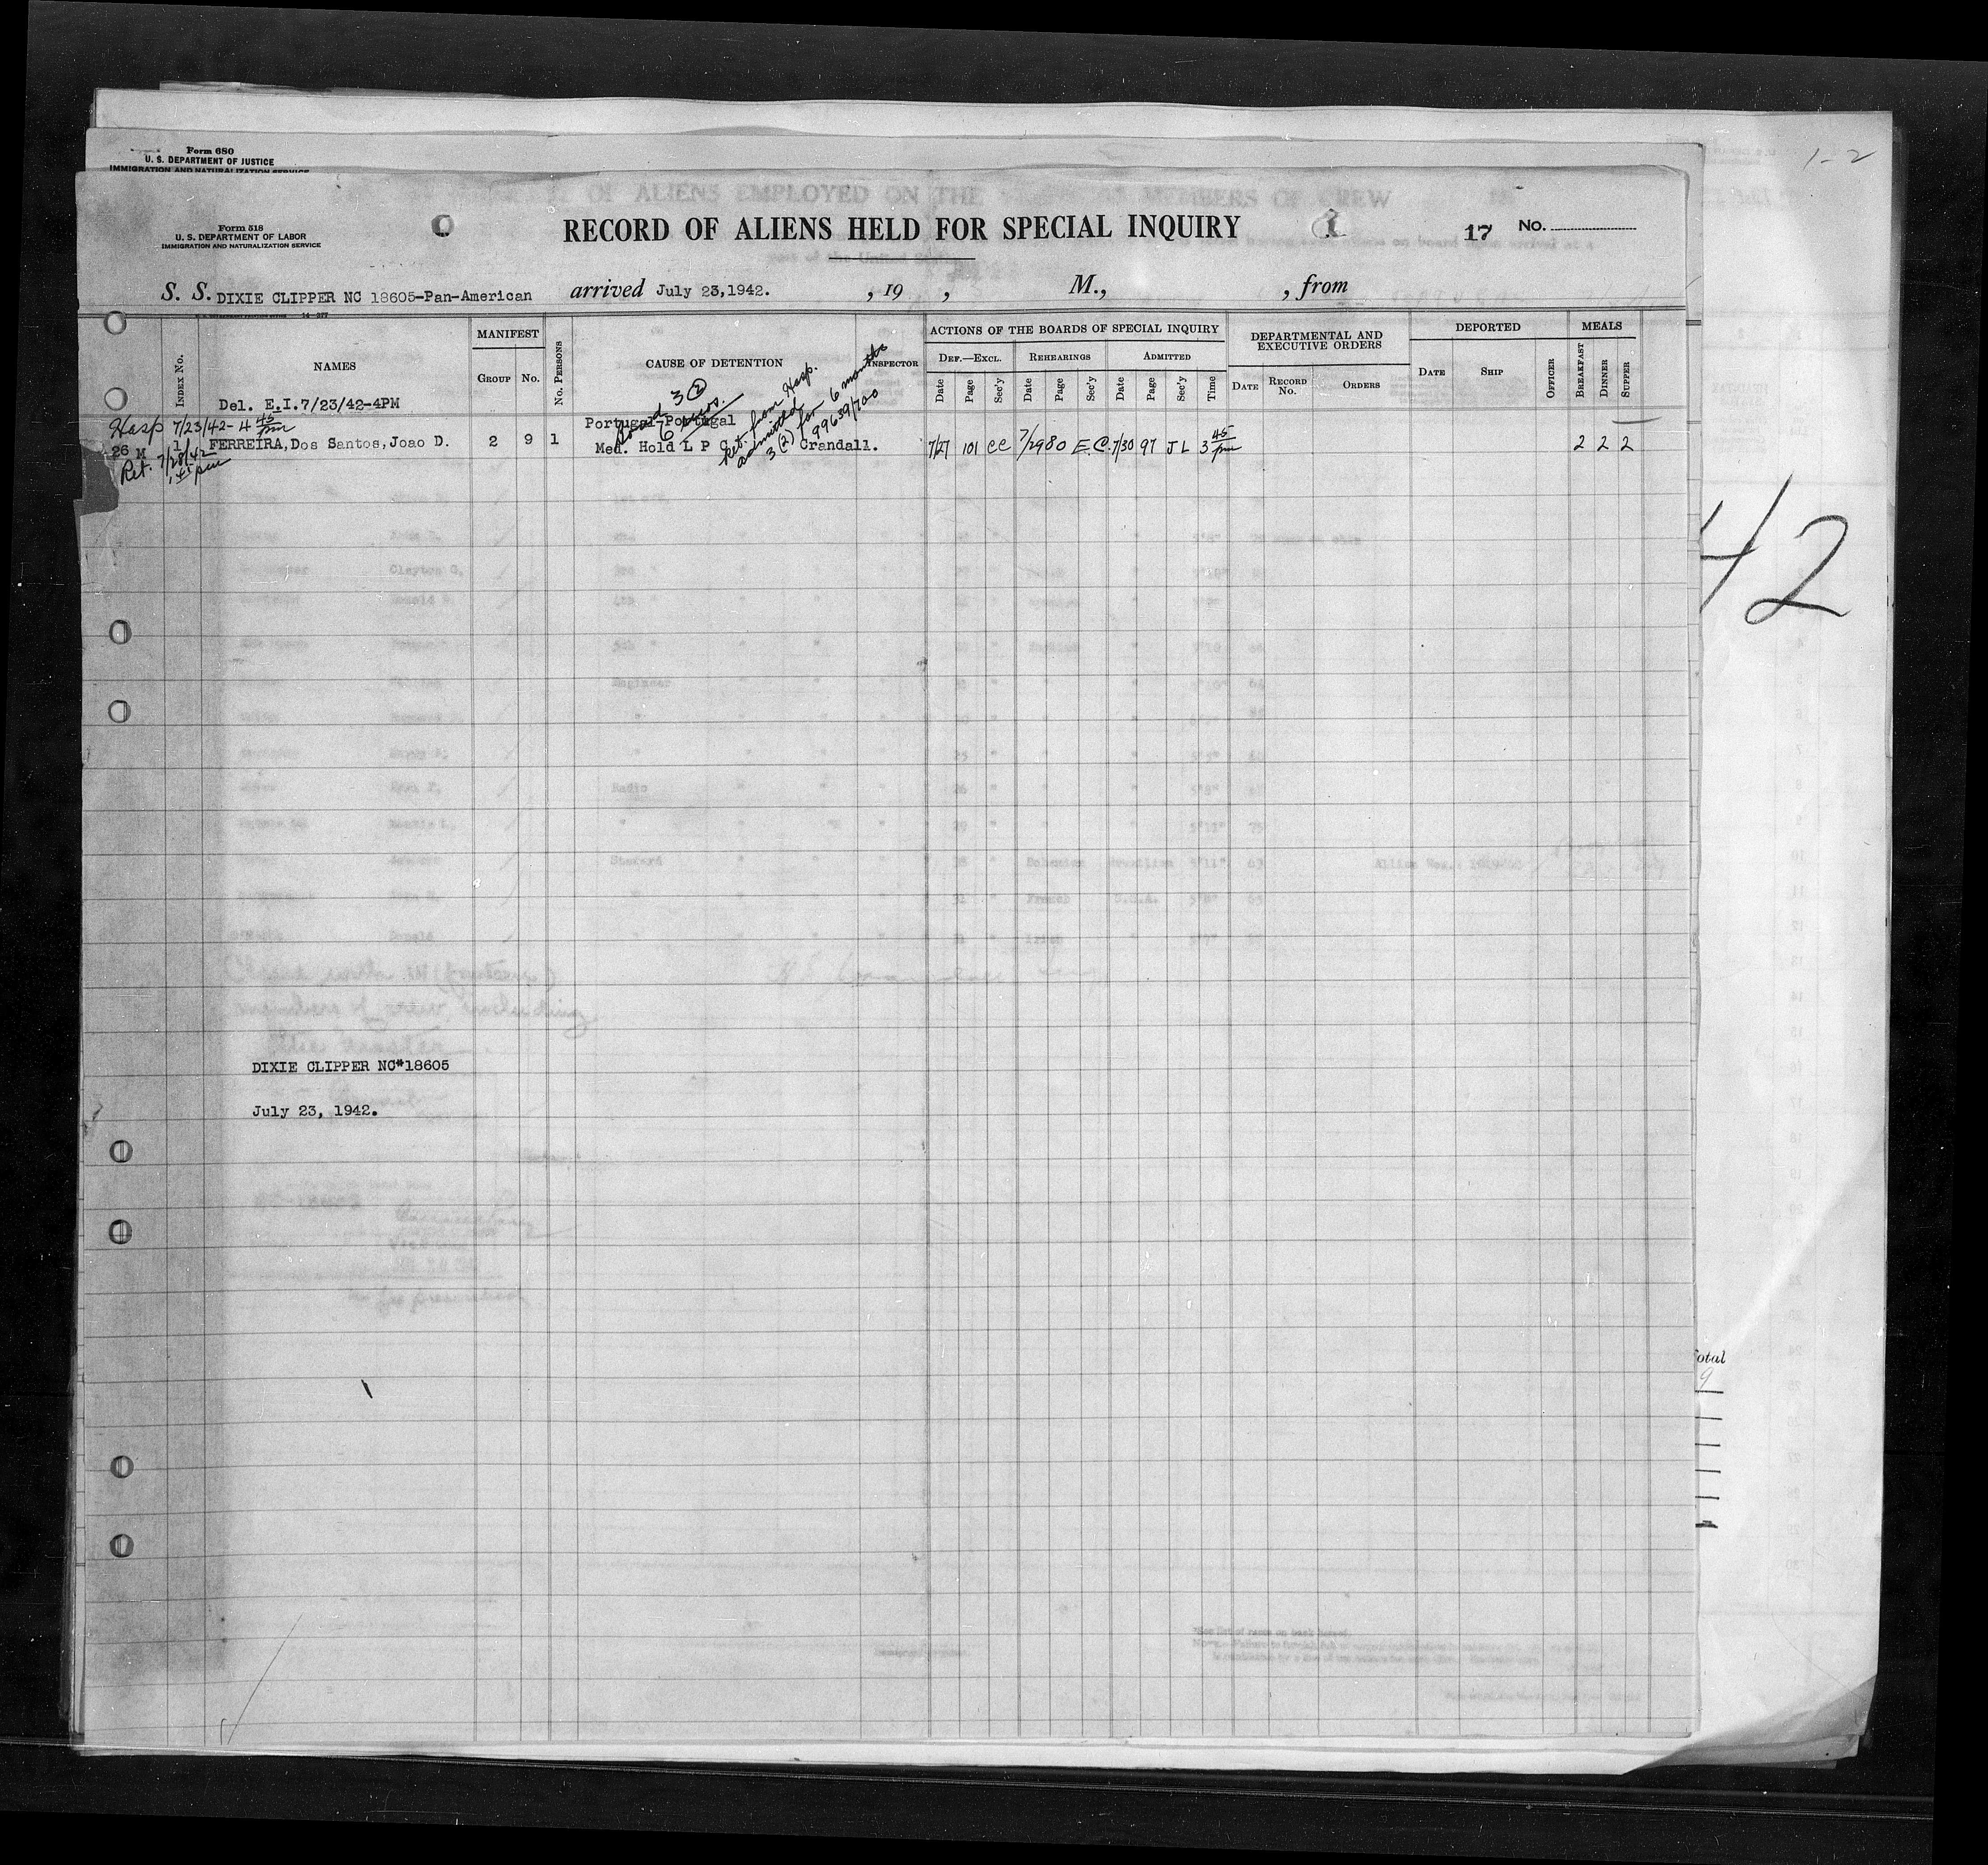 1-2
Form 680
U. S. DEPARTMENT OF JUSTICE
IMMIGRATION AND NATURALIZATION SERVICE
OF ALIENS EMPLOYED ON THE MEMBERS OF CREW
Form 518
U. S. DEPARTMENT OF LABOR
IMMIGRATION AND NATURALIZATION SERVICE
RECORD OF ALIENS HELD FOR SPECIAL INQUIRY
1
17 No.
S. S. DIXIE CLIPPER NC 18605-Pan-American arrived July 23,1942. , 19 , M., , from
Index No.
NAMES
MANIFEST
Group
No.
No. Persons
CAUSE OF DETENTION
Inspector
ACTIONS OF THE BOARDS OF SPECIAL INQUIRY
Def.—Excl.
Rehearings
Admitted
Date Page Sec'y Date Page Sec'y Date Page Sec'y Time
DEPARTMENTAL AND EXECUTIVE ORDERS
Date
Record No.
Orders
DEPORTED
Date
Ship
Officer
MEALS
Breakfast
Dinner
Supper
Del. E.I.7/23/42-4PM
Hosp 7/23/42-4 45 pm
3 (2)
6 mos.
Ret. from Hosp.
admitted
3 (2) for 6 months
99639/700
Portugal-Portugal
26 M 1 FERREIRA,Dos Santos,Joao D. 2 9 1 Med. Hold L P C Crandall. 7/27 101 CC 7/29 80 E.C. 7/30 97 J L 3 45 pm 2 2 2
Ret. 7/28/42
1 45 pm
42
Clayton G.
Engineer
Radio
Steward
DIXIE CLIPPER NC#18605
July 23, 1942.
otal
9